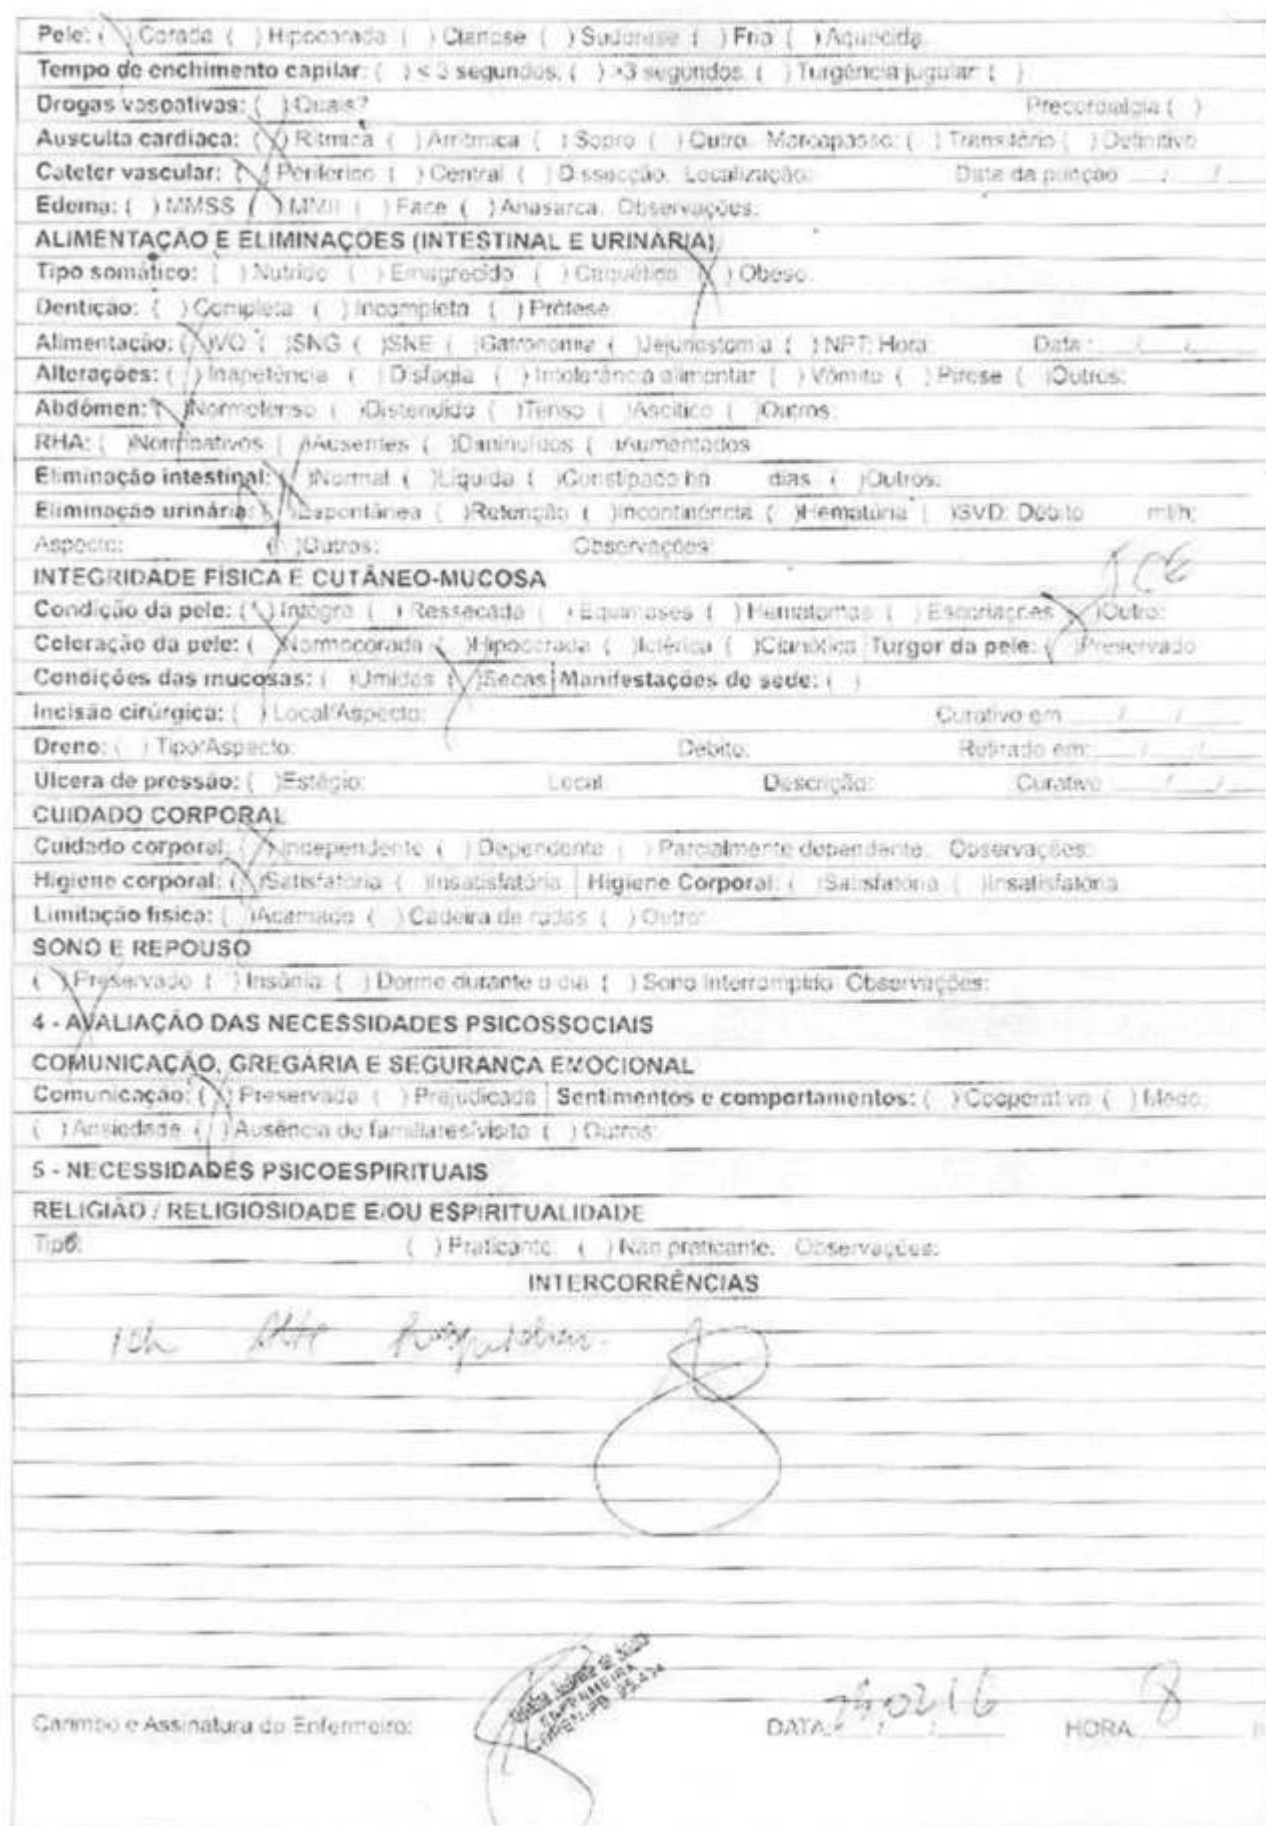 Pele: ( ) Corada ( ) Hipocorada ( ) Cianose ( ) Sudorese ( ) Fria ( ) Aquecida.
Tempo de enchimento capilar: ( ) < 3 segundos, ( ) >3 segundos, ( ) Turgência jugular ( )
Drogas vasoativas: ( ) Quais? Precordialgia ( )
Ausculta cardíaca: (X) Rítmica ( ) Arrítmica ( ) Sopro ( ) Outro. Marcapasso: ( ) Transitório ( ) Definitivo
Cateter vascular: (X) Periférico ( ) Central ( ) Dissecção. Localização: Data da punção __/__/__
Edema: ( ) MMSS ( ) MMII ( ) Face ( ) Anasarca. Observações:
ALIMENTAÇÃO E ELIMINAÇÕES (INTESTINAL E URINÁRIA)
Tipo somático: ( ) Nutrido ( ) Emagrecido ( ) Caquético (X) Obeso.
Dentição: ( ) Completa ( ) Incompleta ( ) Prótese
Alimentação: (X)VO ( )SNG ( )SNE ( )Gatronomia ( )Jejunostomia ( ) NPT: Hora: Data: __/__/__
Alterações: ( ) Inapetência ( ) Disfagia ( ) Intolerância alimentar ( ) Vômito ( ) Pirose ( )Outros:
Abdômen: (X)Normotenso ( )Distendido ( )Tenso ( )Ascítico ( )Outros:
RHA: ( )Normoativos ( )Ausentes ( )Diminuídos ( )Aumentados
Eliminação intestinal: (X)Normal ( )Líquida ( )Constipado há dias ( )Outros:
Eliminação urinária: (X)Espontânea ( )Retenção ( )Incontinência ( )Hematúria ( )SVD: Débito ml/h;
Aspecto: ( )Outros: Observações:
INTEGRIDADE FÍSICA E CUTÂNEO-MUCOSA
Condição da pele: ( ) Íntegra ( ) Ressecada ( ) Equimoses ( ) Hematomas ( ) Escoriações (X)Outro:
Coloração da pele: (X)Normocorada ( )Hipocorada ( )Ictérica ( )Cianótica Turgor da pele: ( )Preservado
Condições das mucosas: ( )Úmidas (X)Secas Manifestações de sede: ( )
Incisão cirúrgica: ( ) Local/Aspecto: Curativo em __/__/__
Dreno: ( ) Tipo/Aspecto: Débito: Retirado em: __/__/__
Úlcera de pressão: ( )Estágio: Local: Descrição: Curativo __/__/__
CUIDADO CORPORAL
Cuidado corporal: (X)Independente ( ) Dependente ( ) Parcialmente dependente. Observações:
Higiene corporal: (X)Satisfatória ( )Insatisfatória Higiene Corporal: ( )Satisfatória ( )Insatisfatória
Limitação física: ( )Acamado ( ) Cadeira de rodas ( ) Outro:
SONO E REPOUSO
(X)Preservado ( ) Insônia ( ) Dorme durante o dia ( ) Sono interrompido Observações:
4 - AVALIAÇÃO DAS NECESSIDADES PSICOSSOCIAIS
COMUNICAÇÃO, GREGÁRIA E SEGURANÇA EMOCIONAL
Comunicação: (X) Preservada ( ) Prejudicada Sentimentos e comportamentos: ( ) Cooperativo ( ) Medo;
( ) Ansiedade ( ) Ausência de familiares/visita ( ) Outros:
5 - NECESSIDADES PSICOESPIRITUAIS
RELIGIÃO / RELIGIOSIDADE E/OU ESPIRITUALIDADE
Tipo: ( ) Praticante. ( ) Não praticante. Observações:
INTERCORRÊNCIAS
Alta hospitalar.
ENFERMEIRA
Carimbo e Assinatura do Enfermeiro: DATA: HORA: 8 h